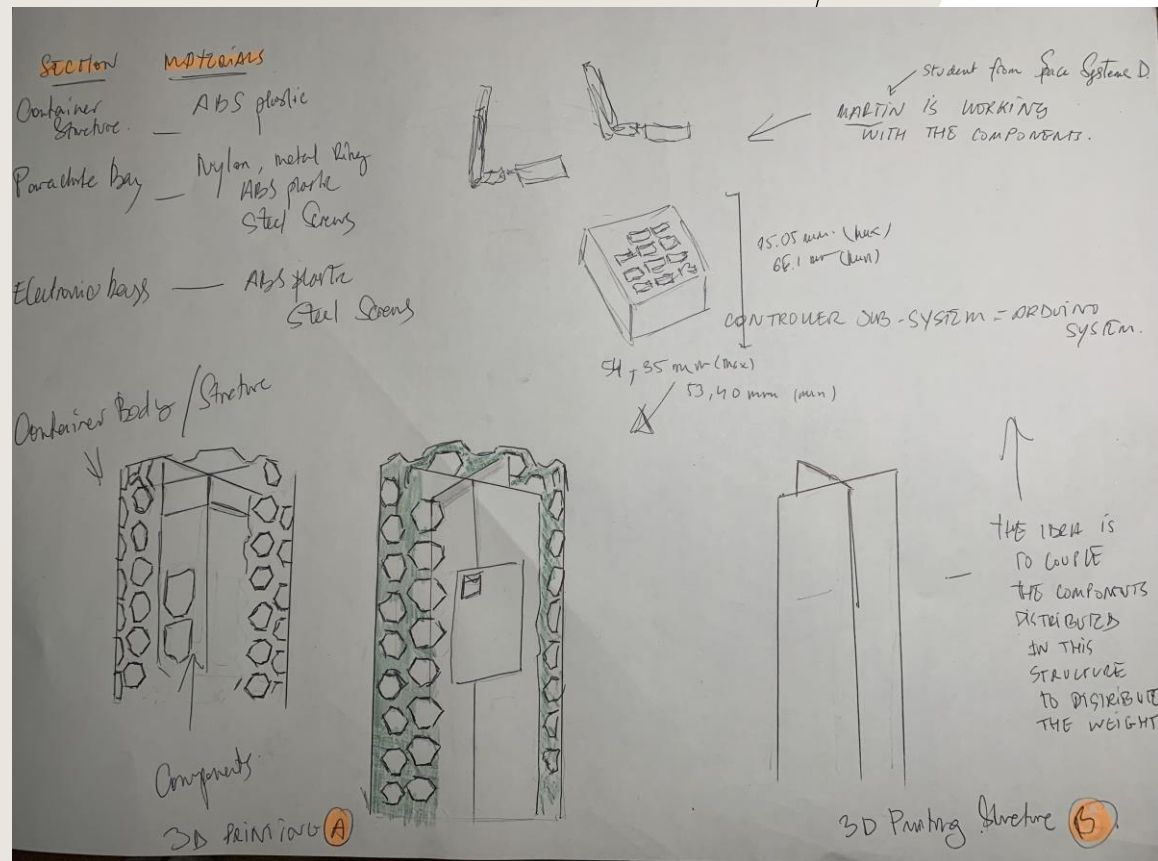 SECTION MATERIALS
Container Structure. — ABS plastic
Parachute bay — Nylon, metal Ring
ABS plastic
Steel Screws
Electronic bays — ABS plastic
Steel Screws
Student from Space Systems D.
MARTIN IS WORKING
WITH THE COMPONENTS.
(max)
(min)
CONTROLLER SUB-SYSTEM = ARDUINO
SYSTEM.
54,35 mm (max)
53,40 mm (min)
Container Body / Structure
Components.
3D PRINTING A
THE IDEA IS
TO COUPLE
THE COMPONENTS
DISTRIBUTED
IN THIS
STRUCTURE
TO DISTRIBUTE
THE WEIGHT
3D Printing Structure B